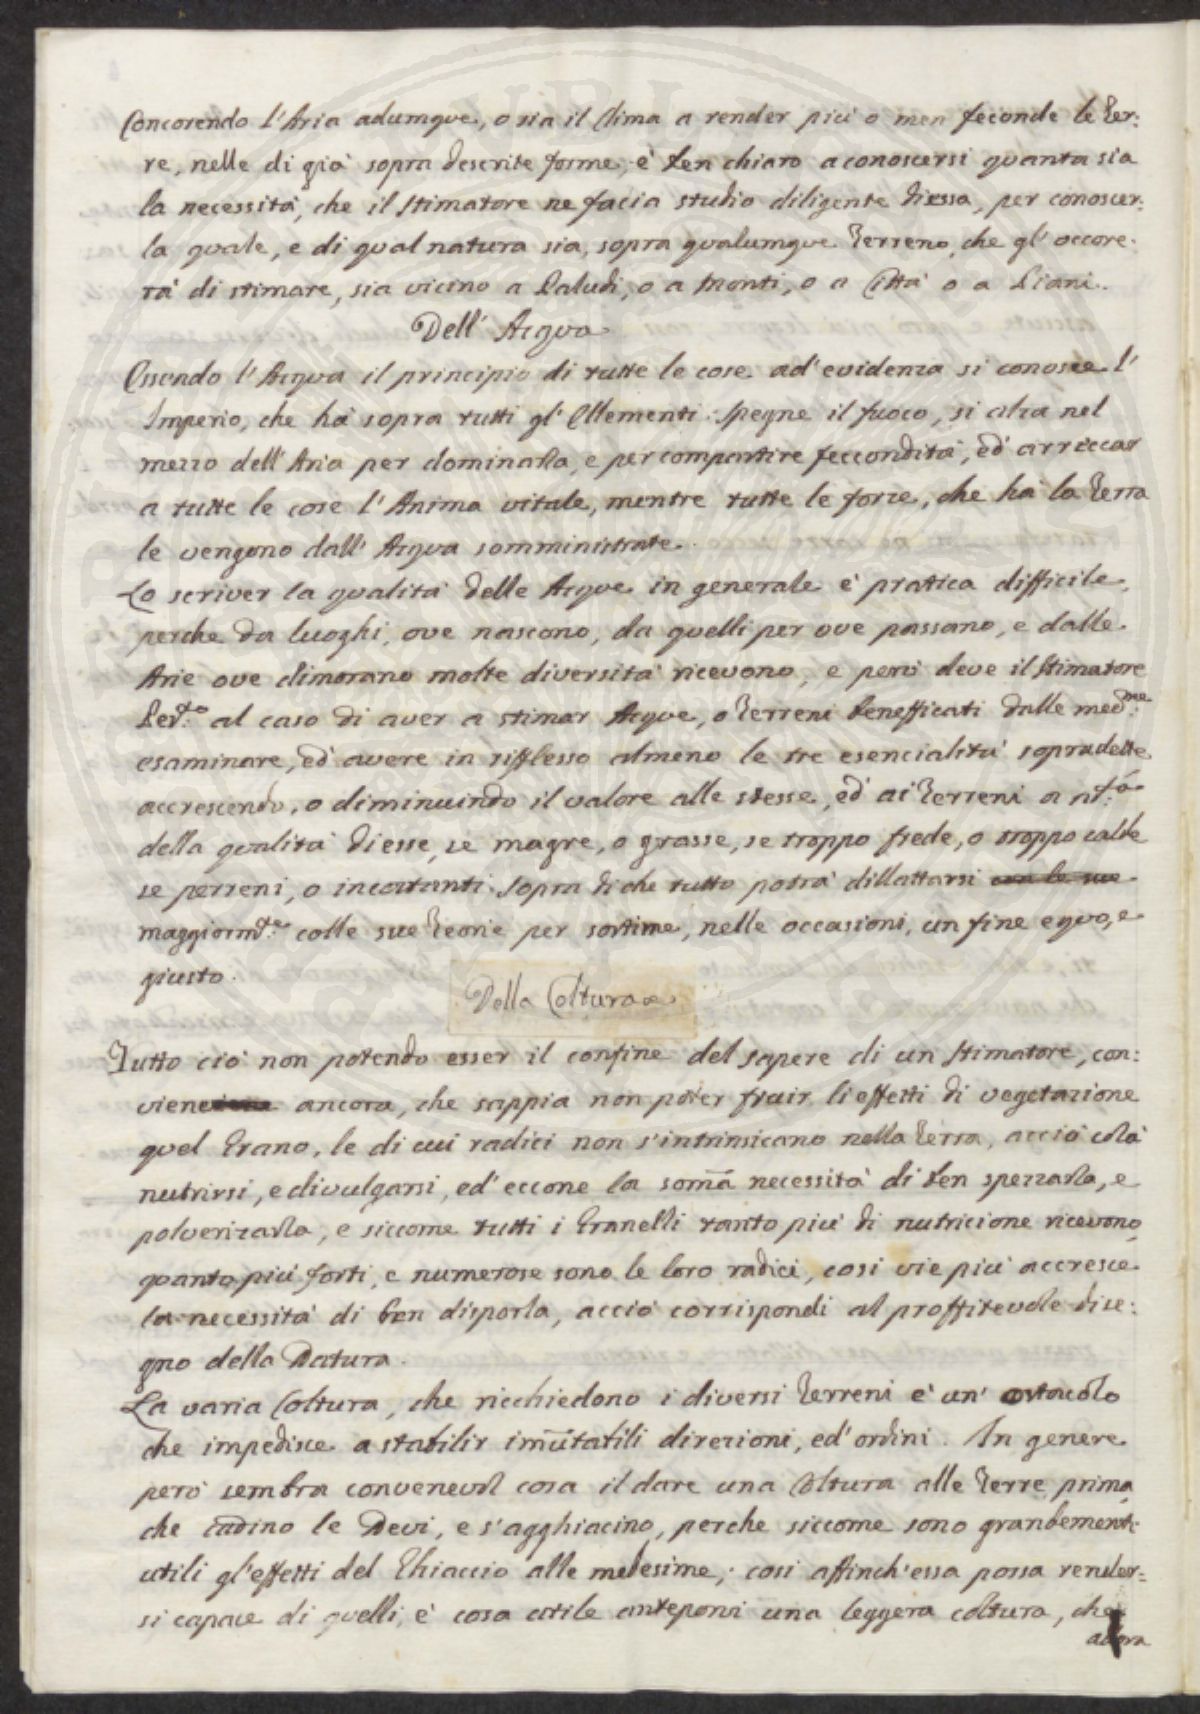 Concorendo l'Aria adumque, o sia il Clima a render più o men feconde le Ter:
re, nelle di già sopra descrite forme, è ben chiaro a conoscersi quanta sia
la necessità, che il Stimatore ne facia studio diligente diessa, per conoscer:
la quale, e di qual natura sia, sopra qualumque Terreno, che gl'occore:
rà di stimare, sia vicino a Paludi, o a Monti, o a Città o a Piani.
Dell'Acqua
Essendo l'Acqua il principio di tutte le cose ad'evidenza si conosce l'
Imperio, che hà sopra tutti gl'Ellementi. Spegne il fuoco, si alza nel
mezzo dell'Aria per dominarla, e per compartire feccondità, ed' arreccar
a tutte le cose l'Anima vitale, mentre tutte le forze, che hà la Terra
le vengono dall'Acqua somministrate.
Lo scriver la qualità delle Acque in generale è pratica difficile,
perche da luoghi, ove nascono, da quelli per ove passano, e dalle
Arie ove dimorano molte diversità ricevono, e però deve il Stimatore
Per.to al caso di aver a stimar Acque, o Terreni benefficati dalle med.me
esaminare, ed' avere in rifflesso almeno le tre esencialità sopradette
accrescendo, o diminuindo il valore alle stesse, ed' ai Terreni a
della qualità di esse, se magre, o grasse, se troppo frede, o troppo calde
se perreni, o incostanti. Sopra di che tutto potrà dillattarsi con le sue
maggiorm.te colle sue Teorie per sortirne, nelle occasioni, un fine equo, e
giusto.
Della Coltura
Tutto ciò non potendo esser il confine del sapere di un Stimatore, con:
viene ancora, che sappia non poter fruir li effetti di vegetazione
quel Grano, le di cui radici non s'intrinsicano nella Terra, acciò colà
nutrirsi, e divulgarsi, ed' eccone la som̃a necessità di ben spezzarla, e
polverizarla, e siccome tutti i Granelli tanto più di nutricione ricevono,
quanto più forti, e numerose sono le loro radici, cosi vie più accresce
la necessità di ben disporla, acciò corrispondi al proffitevole dise:
gno della Natura.
La varia Coltura, che ricchiedono i diversi Terreni è un' ostacolo
che impedisce a stabilir im̃utabili direzioni, ed' ordini. In genere
però sembra convenevol cosa il dare una Coltura alle Terre prima,
che cadino le Nevi, e s'agghiacino, perche siccome sono grandemente
utili gl'effetti del Ghiaccio alle medesime; cosi affinch'essa possa render:
si capace di quelli, è cosa utile anteporvi una leggera coltura, che